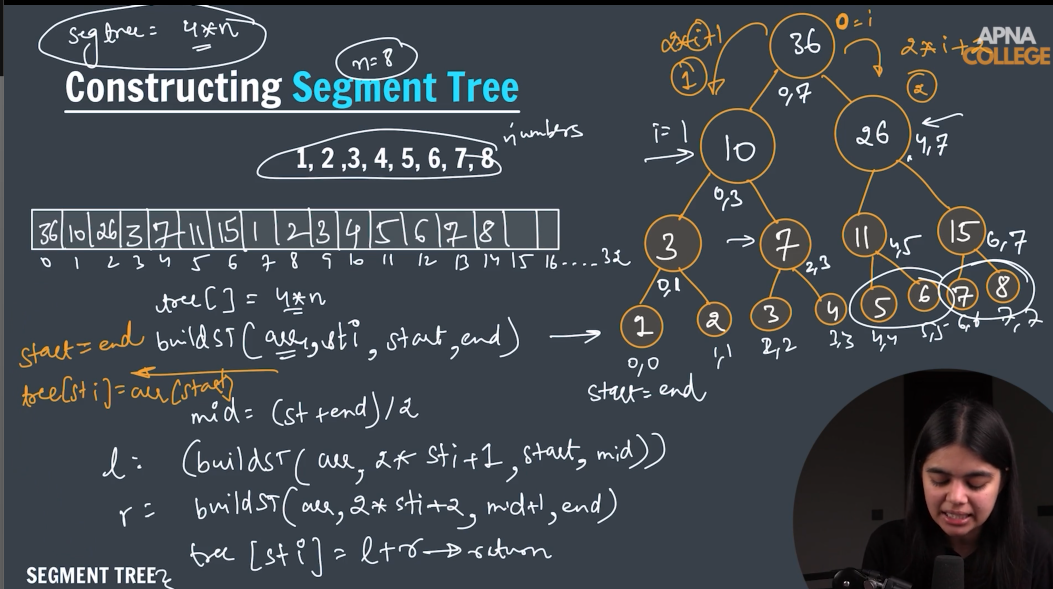 segtree = 4*n
n=8
Constructing Segment Tree
numbers
1, 2 ,3, 4, 5, 6, 7, 8
36 10 26 3 7 11 15 1 2 3 4 5 6 7 8
0 1 2 3 4 5 6 7 8 9 10 11 12 13 14 15 16....32
tree[] = 4*n
start = end
buildST(arr, sti, start, end)
tree[sti] = arr[start]
mid = (st+end)/2
l: (buildST(arr, 2* sti+1, start, mid))
r = buildST(arr, 2* sti+2, mid+1, end)
tree [sti] = l+r → return
SEGMENT TREE
APNA
COLLEGE
0=i
2*i+1
2*i+2
1
36
2
0,7
i=1
10
26
4,7
0,3
3
7
11
15
0,1
2,3
4,5
6,7
1
2
3
4
5
6
7
8
0,0
1,1
2,2
3,3
4,4
5,5
6,6
7,7
start=end